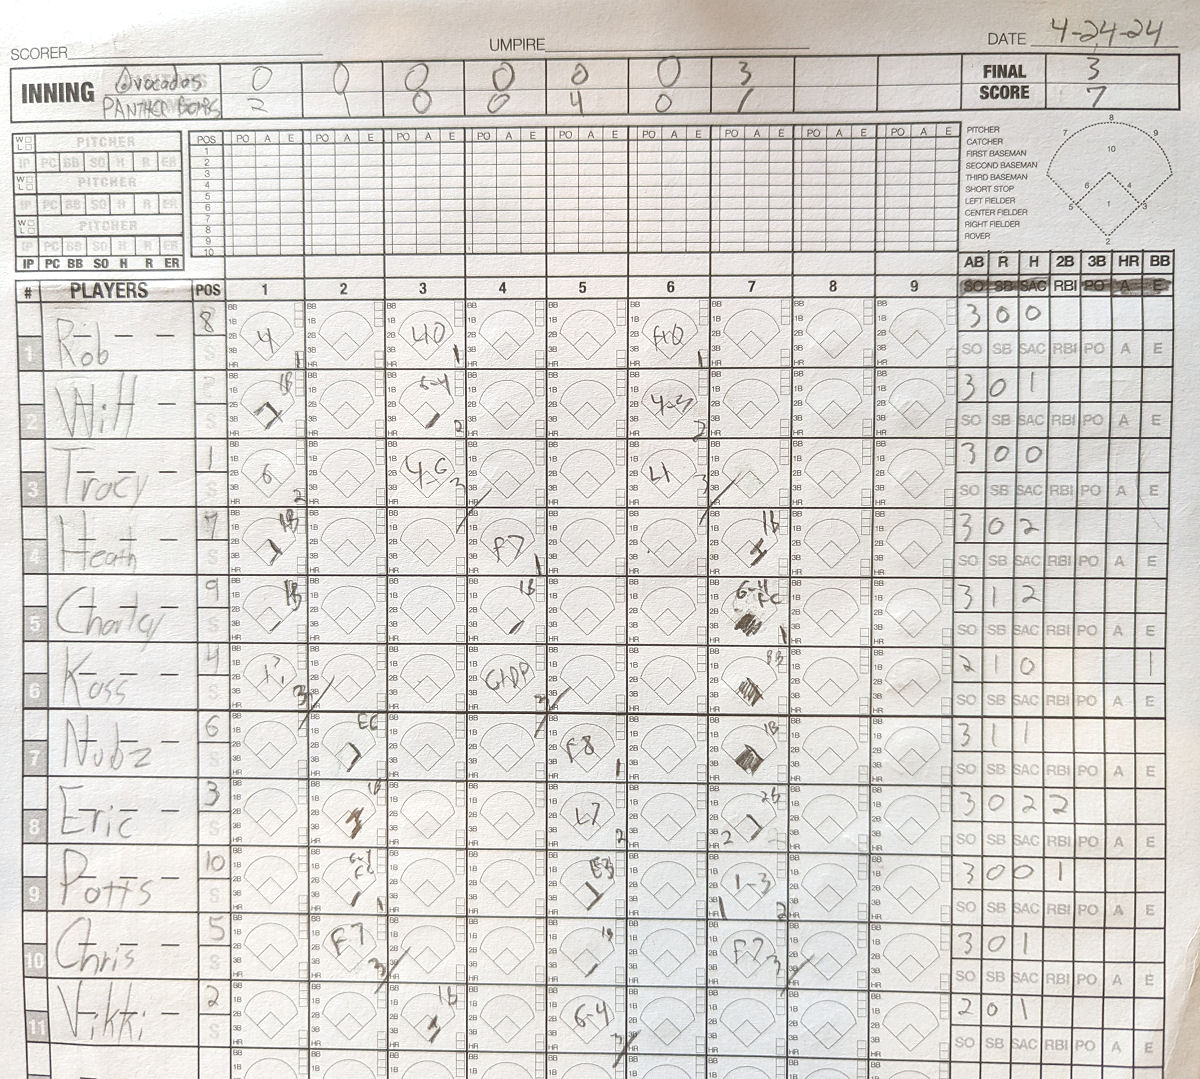 SCORER UMPIRE DATE 4-24-24
INNING Avocados 0 0 0 0 0 0 3 FINAL SCORE 3
PANTHER BOMBS 2 1 0 0 4 0 1 7
W L PITCHER
IP PC BB SO H R ER
W L PITCHER
IP PC BB SO H R ER
W L PITCHER
IP PC BB SO H R ER
IP PC BB SO H R ER
POS PO A E PO A E PO A E PO A E PO A E PO A E PO A E PO A E PO A E
1
2
3
4
5
6
7
8
9
10
PITCHER
CATCHER
FIRST BASEMAN
SECOND BASEMAN
THIRD BASEMAN
SHORT STOP
LEFT FIELDER
CENTER FIELDER
RIGHT FIELDER
ROVER
8
7 9
10
6 4
5 1 3
2
AB R H 2B 3B HR BB
# PLAYERS POS 1 2 3 4 5 6 7 8 9 SO SB SAC RBI PO A E
1 Rob 8 4 1 1 1 3 0 0
SO SB SAC RBI PO A E
2 Will 1B 6-4 2 4-3 2 3 0 1
SO SB SAC RBI PO A E
3 Tracy 1 6 2 4-6 3 L1 3 3 0 0
SO SB SAC RBI PO A E
4 Heath 7 1B F7 1 1B 3 0 2
SO SB SAC RBI PO A E
5 Charley 9 1B 1B 6-4 FC 1 3 1 2
SO SB SAC RBI PO A E
6 Kass 4 3 GIDP BB 2 1 0 1
SO SB SAC RBI PO A E
7 Nubz 6 F8 1 1B 3 1 1
SO SB SAC RBI PO A E
8 Eric 3 1B L7 2 2B 2 3 0 2 2
SO SB SAC RBI PO A E
9 Potts 10 1 E3 1-3 1 2 3 0 0 1
SO SB SAC RBI PO A E
10 Chris 5 F7 3 1B F7 3 3 0 1
SO SB SAC RBI PO A E
11 Vikki 2 1B 6-4 3 2 0 1
SO SB SAC RBI PO A E